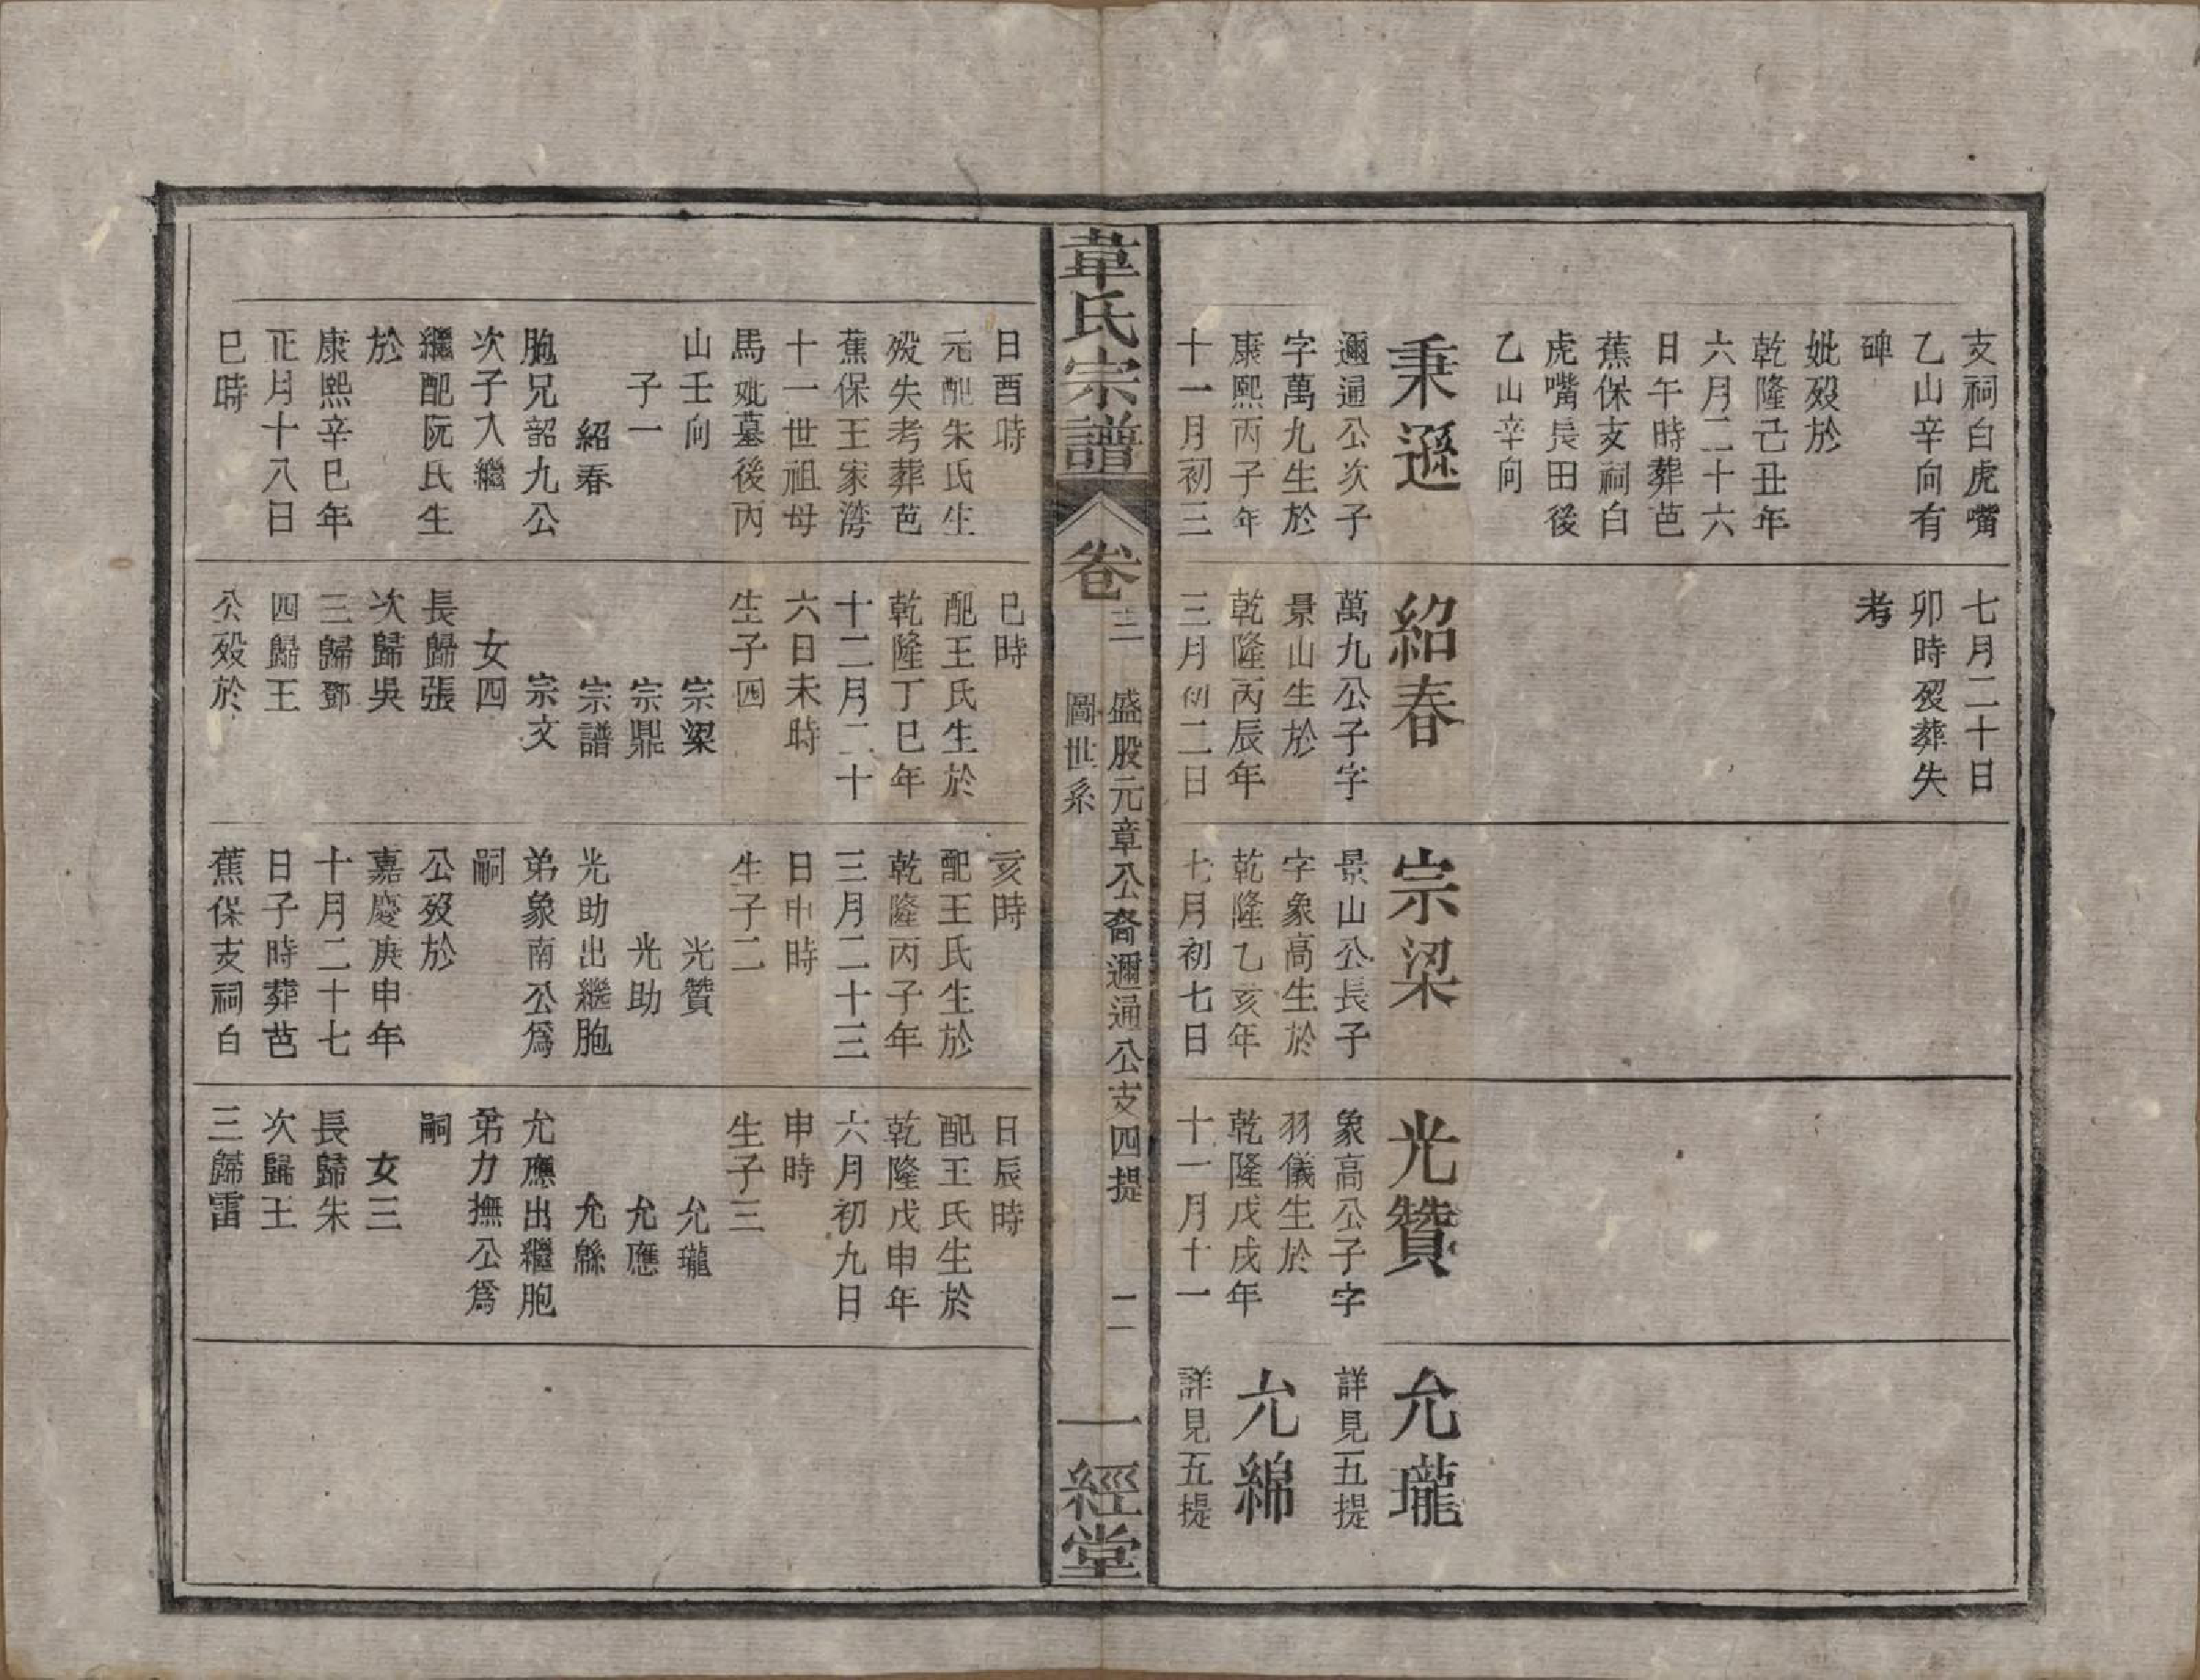 支祠白虎嘴
乙山辛向有
碑
妣歿於
乾隆己丑年
六月二十六
日午時葬芭
蕉保支祠白
虎嘴長田後
乙山辛向
秉遜
邇通公次子
字萬九生於
康熙丙子年
十一月初三
七月二十日
卯時歿葬失
考
紹春
萬九公子字
景山生於
乾隆丙辰年
三月初二日
宗梁
景山公長子
字象高生於
乾隆乙亥年
七月初七日
光贊
象高公子字
羽儀生於
乾隆戊戌年
十一月十一
允瓏
詳見五提
允綿
詳見五提
韋氏宗譜
卷三
盛股元章公裔邇通公支四提
圖世系
二
一經堂
日酉時
元配朱氏生
歿失考葬芭
蕉保王家湾
十一世祖母
馬妣墓後丙
山壬向
子一
紹春
胞兄韶九公
次子入繼
繼配阮氏生
於
康熙辛巳年
正月十八日
巳時
巳時
配王氏生於
乾隆丁巳年
十二月二十
六日未時
生子四
宗梁
宗鼎
宗譜
宗文
女四
長歸張
次歸吳
三歸鄧
四歸王
公歿於
亥時
配王氏生於
乾隆丙子年
三月二十三
日申時
生子二
光贊
光助
光助出繼胞
弟象南公爲
嗣
公歿於
嘉慶庚申年
十月二十七
日子時葬芭
蕉保支祠白
日辰時
配王氏生於
乾隆戊申年
六月初九日
申時
生子三
允瓏
允應
允緜
允應出繼胞
弟力撫公爲
嗣
女三
長歸朱
次歸王
三歸雷